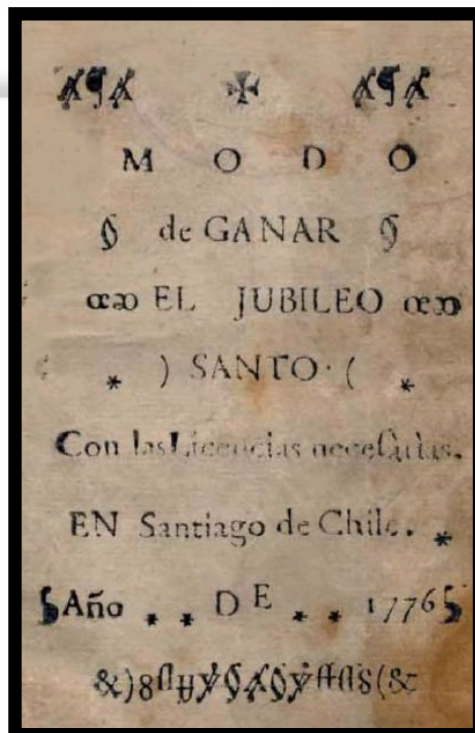 M O D O
de GANAR
EL JUBILEO
) SANTO. (
Con las Licencias necesarias.
EN Santiago de Chile. *
Año * * D E * * 1776